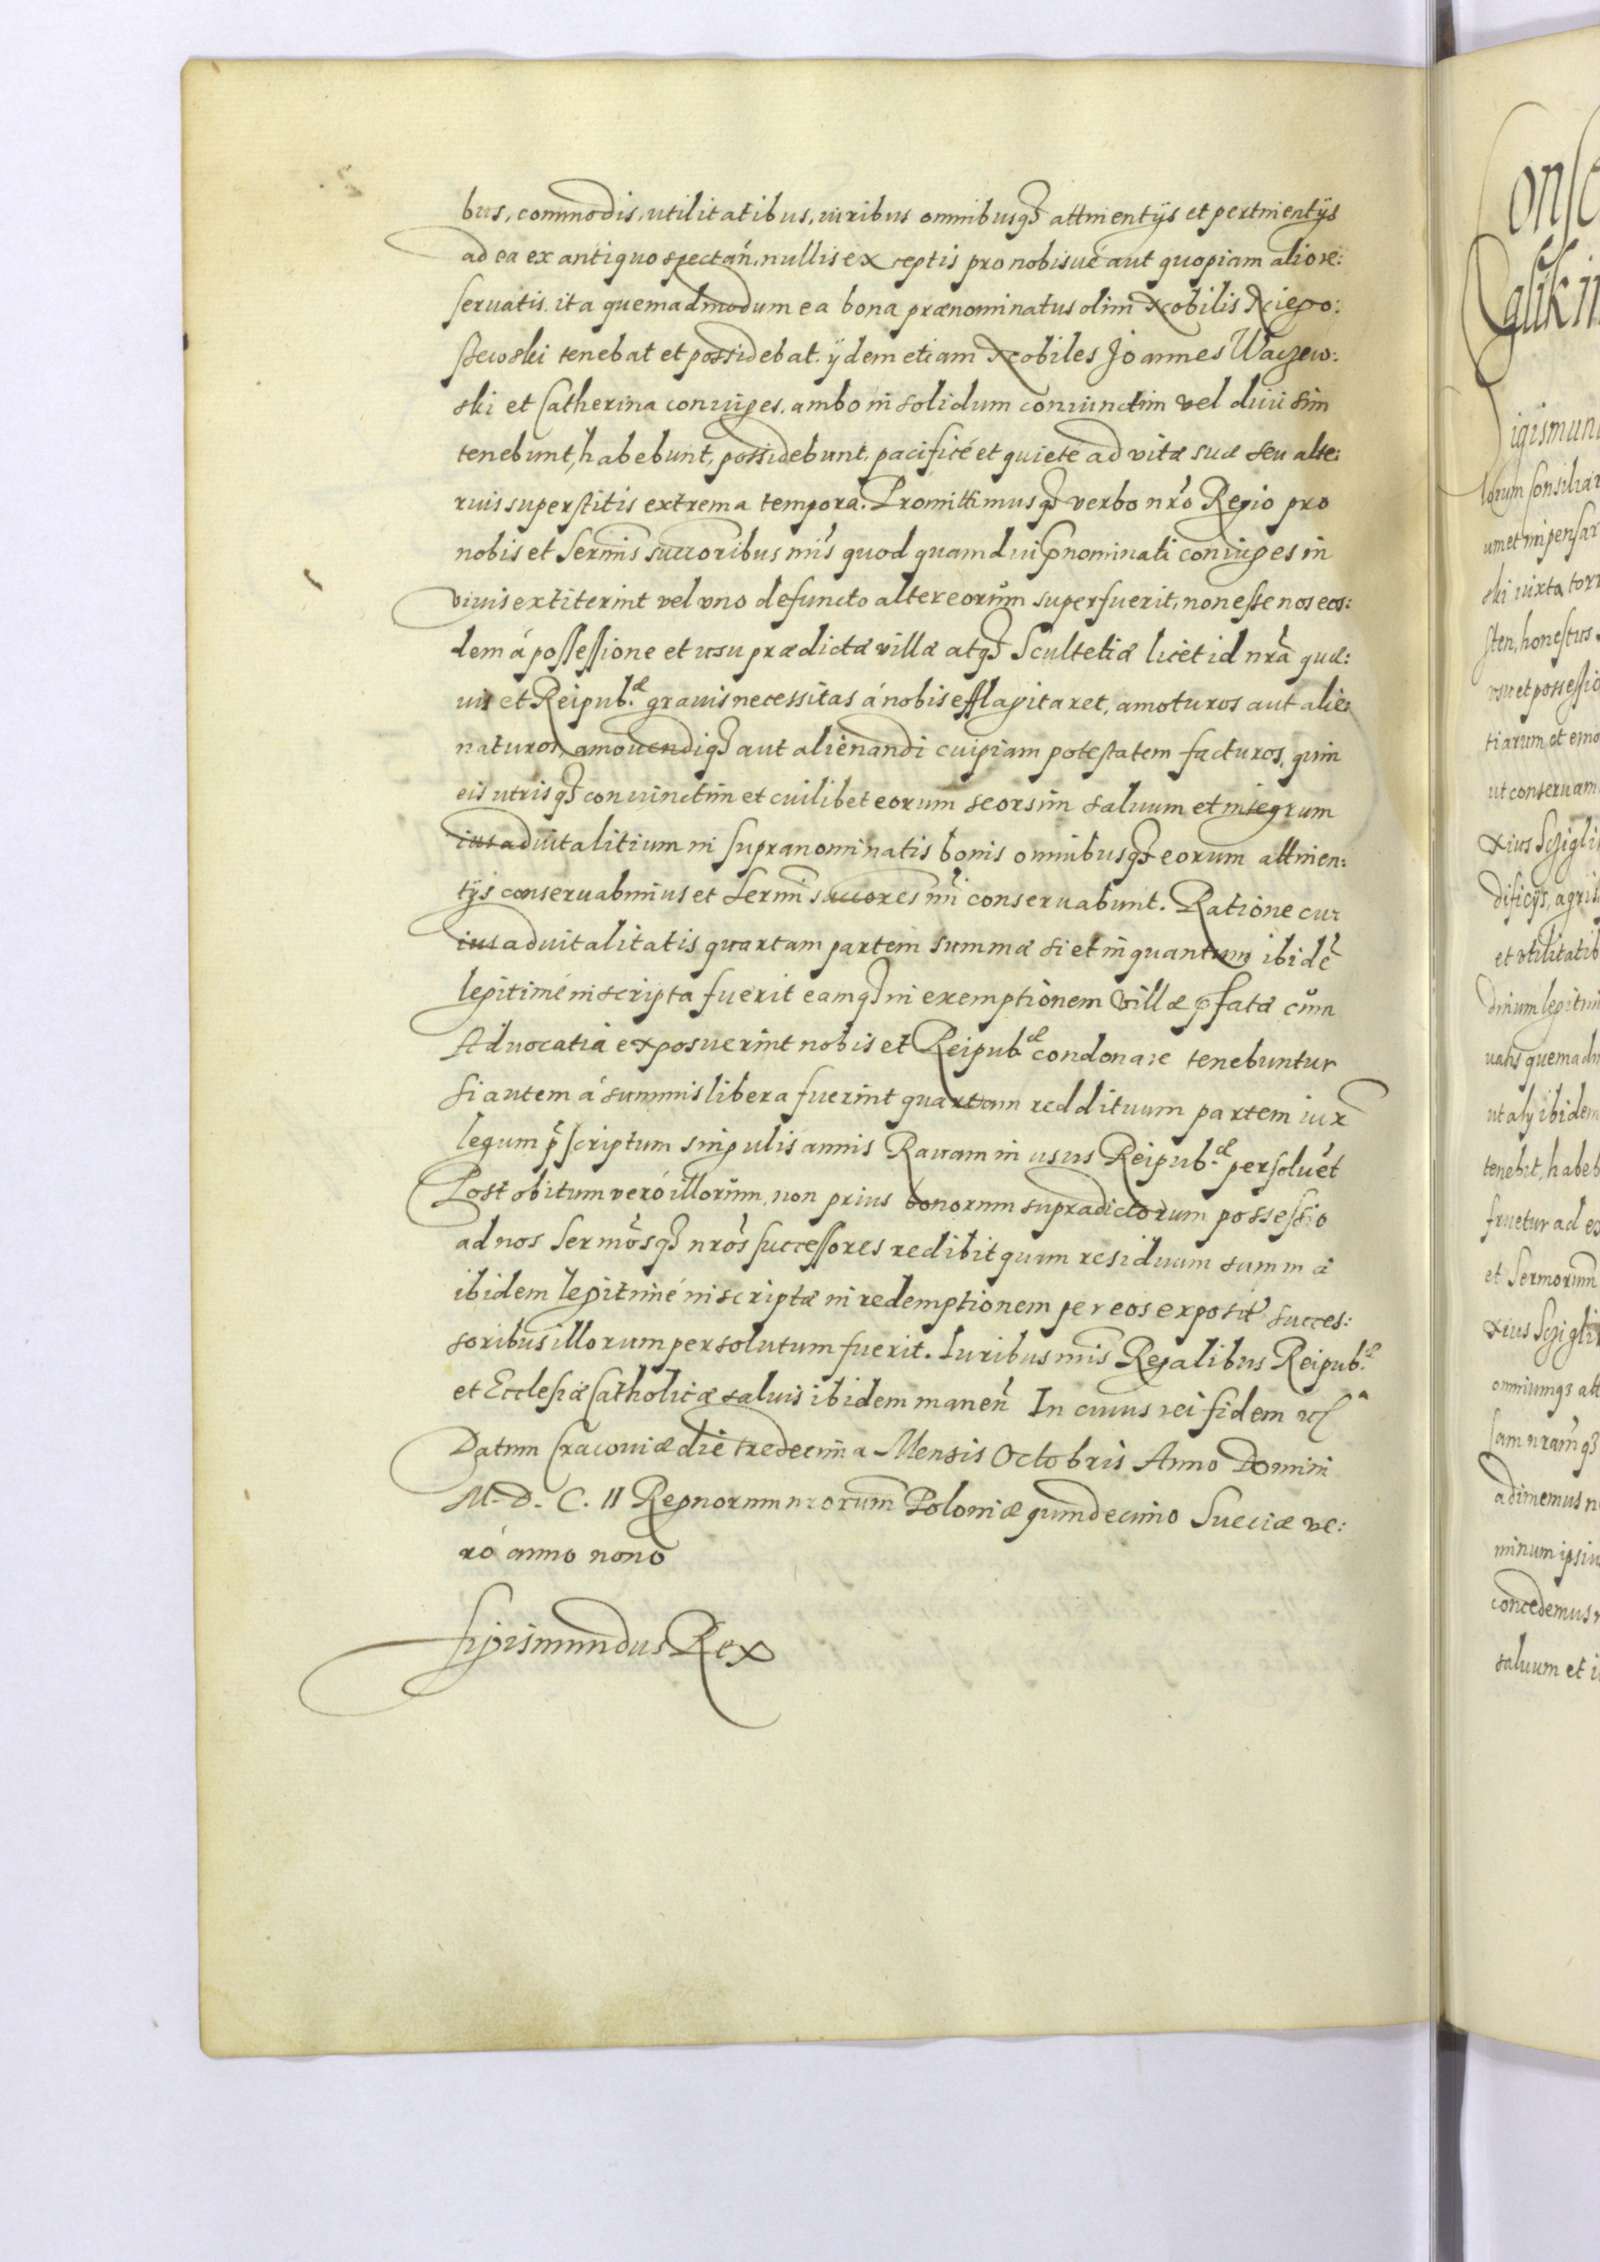 bus, commodis, utilitatibus, iuribus omnibusqꝫ attinentijs et pertinentijs
ad ea ex antiquo spectan̄, nullis exceptis pro nobisué aut quopiam alio re:
servatis, ita quemadmodum ea bona prænominatus olim Nobilis Niego:
szewski tenebat et possidebat. ijdem etiam Nobiles Joannes Waczew:
ski et Catherina coniuges, ambo in solidum coniunctim vel diuisim
tenebunt, habebunt, possidebunt, pacificé et quiete ad vitæ suæ seu alte:
rius superstitis extrema tempora. Promittimusqꝫ verbo nr̄o Regio pro
nobis et Serm̄is succoribus nr̄is quod quamdiu p̄nominati coniuges in
viuis extiterint vel vno defuncto alter eorum superfuerit, non esse nos eos:
dem á possessione et usu prædictæ villæ atqꝫ Scultetiæ licet id nr̄a quæ:
uis et Reipub.æ grauis necessitas á nobis efflagitaret, amoturos aut alie:
naturos, amouendiqꝫ aut alienandi cuipiam potestatem facturos, quin
eis utrisqꝫ coniunctim et cuilibet eorum seorsim saluum et integrum
ius aduitalitium in supranominatis bonis omnibusqꝫ eorum attinen:
tijs conseruabimus et Serm̄i succores nr̄i conseruabunt. Ratione cui
ius aduitalitatis quartam partem summæ si et in quantum ibidē
legitimé inscripta fuerit eamqꝫ in exemptionem Villæ p̄fatæ cum
Aduocatia exposuerint nobis et Reipub.æ condonare tenebuntur
si autem á summis libera fuerint quartam reddituum partem iux
legum p̄scriptum singulis annis Rauam in usus Reipub.æ persoluēt
Post obitum veró illorum, non prius bonorum supradictorum possessio
ad nos Serm̄osqꝫ nr̄os successores redibit quam residuum summæ
ibidem legitimé inscriptæ in redemptionem per eos expositæ succes:
soribus illorum persolutum fuerit. Iuribus nr̄is Regalibus Reipub.æ
et Ecclesiæ Catholicæ saluis ibidem manen̄ In cuius rei fidem etc
Datum Cracouiæ die tredecima Mensis Octobris Anno Domini
M. D. C. II Regnorum nrorum Poloniæ quindecimo Sueciæ ve:
ró anno nono
Sigismundus Rex
igismun
lorum Consiliar
um et impensar
ski iuxta
sten, honestus
usu et possessio
tiarum, et emo
ut conseruam
dificijs, agris
et vtilitatib
dnium legitim
uatis quemadm
ut alij ibidem
tenebit, habeb
fruetur ad ex
et Sermorum
omniumqꝫ att
sam nram̄qꝫ
adimemus n
minum ipsiu
concedemus
saluum et i